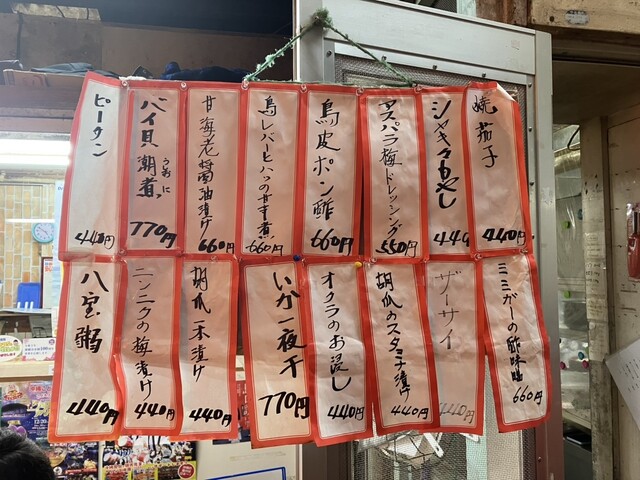 焼茄子
440円
シャキ々もやし
440
アスパラ梅ドレッシング
550円
鳥皮ポン酢
660円
鳥レバーとハツの甘辛煮
660円
甘海老醤油漬け
660円
バイ貝潮煮
うしおに
770円
ピータン
440円
ミミガーの酢味噌
660円
ザーサイ
440円
胡瓜のスタミナ漬け
440円
オクラのお浸し
440円
いか一夜干
770円
胡瓜一本漬け
440円
ニンニクの梅漬け
440円
八宝粥
440円